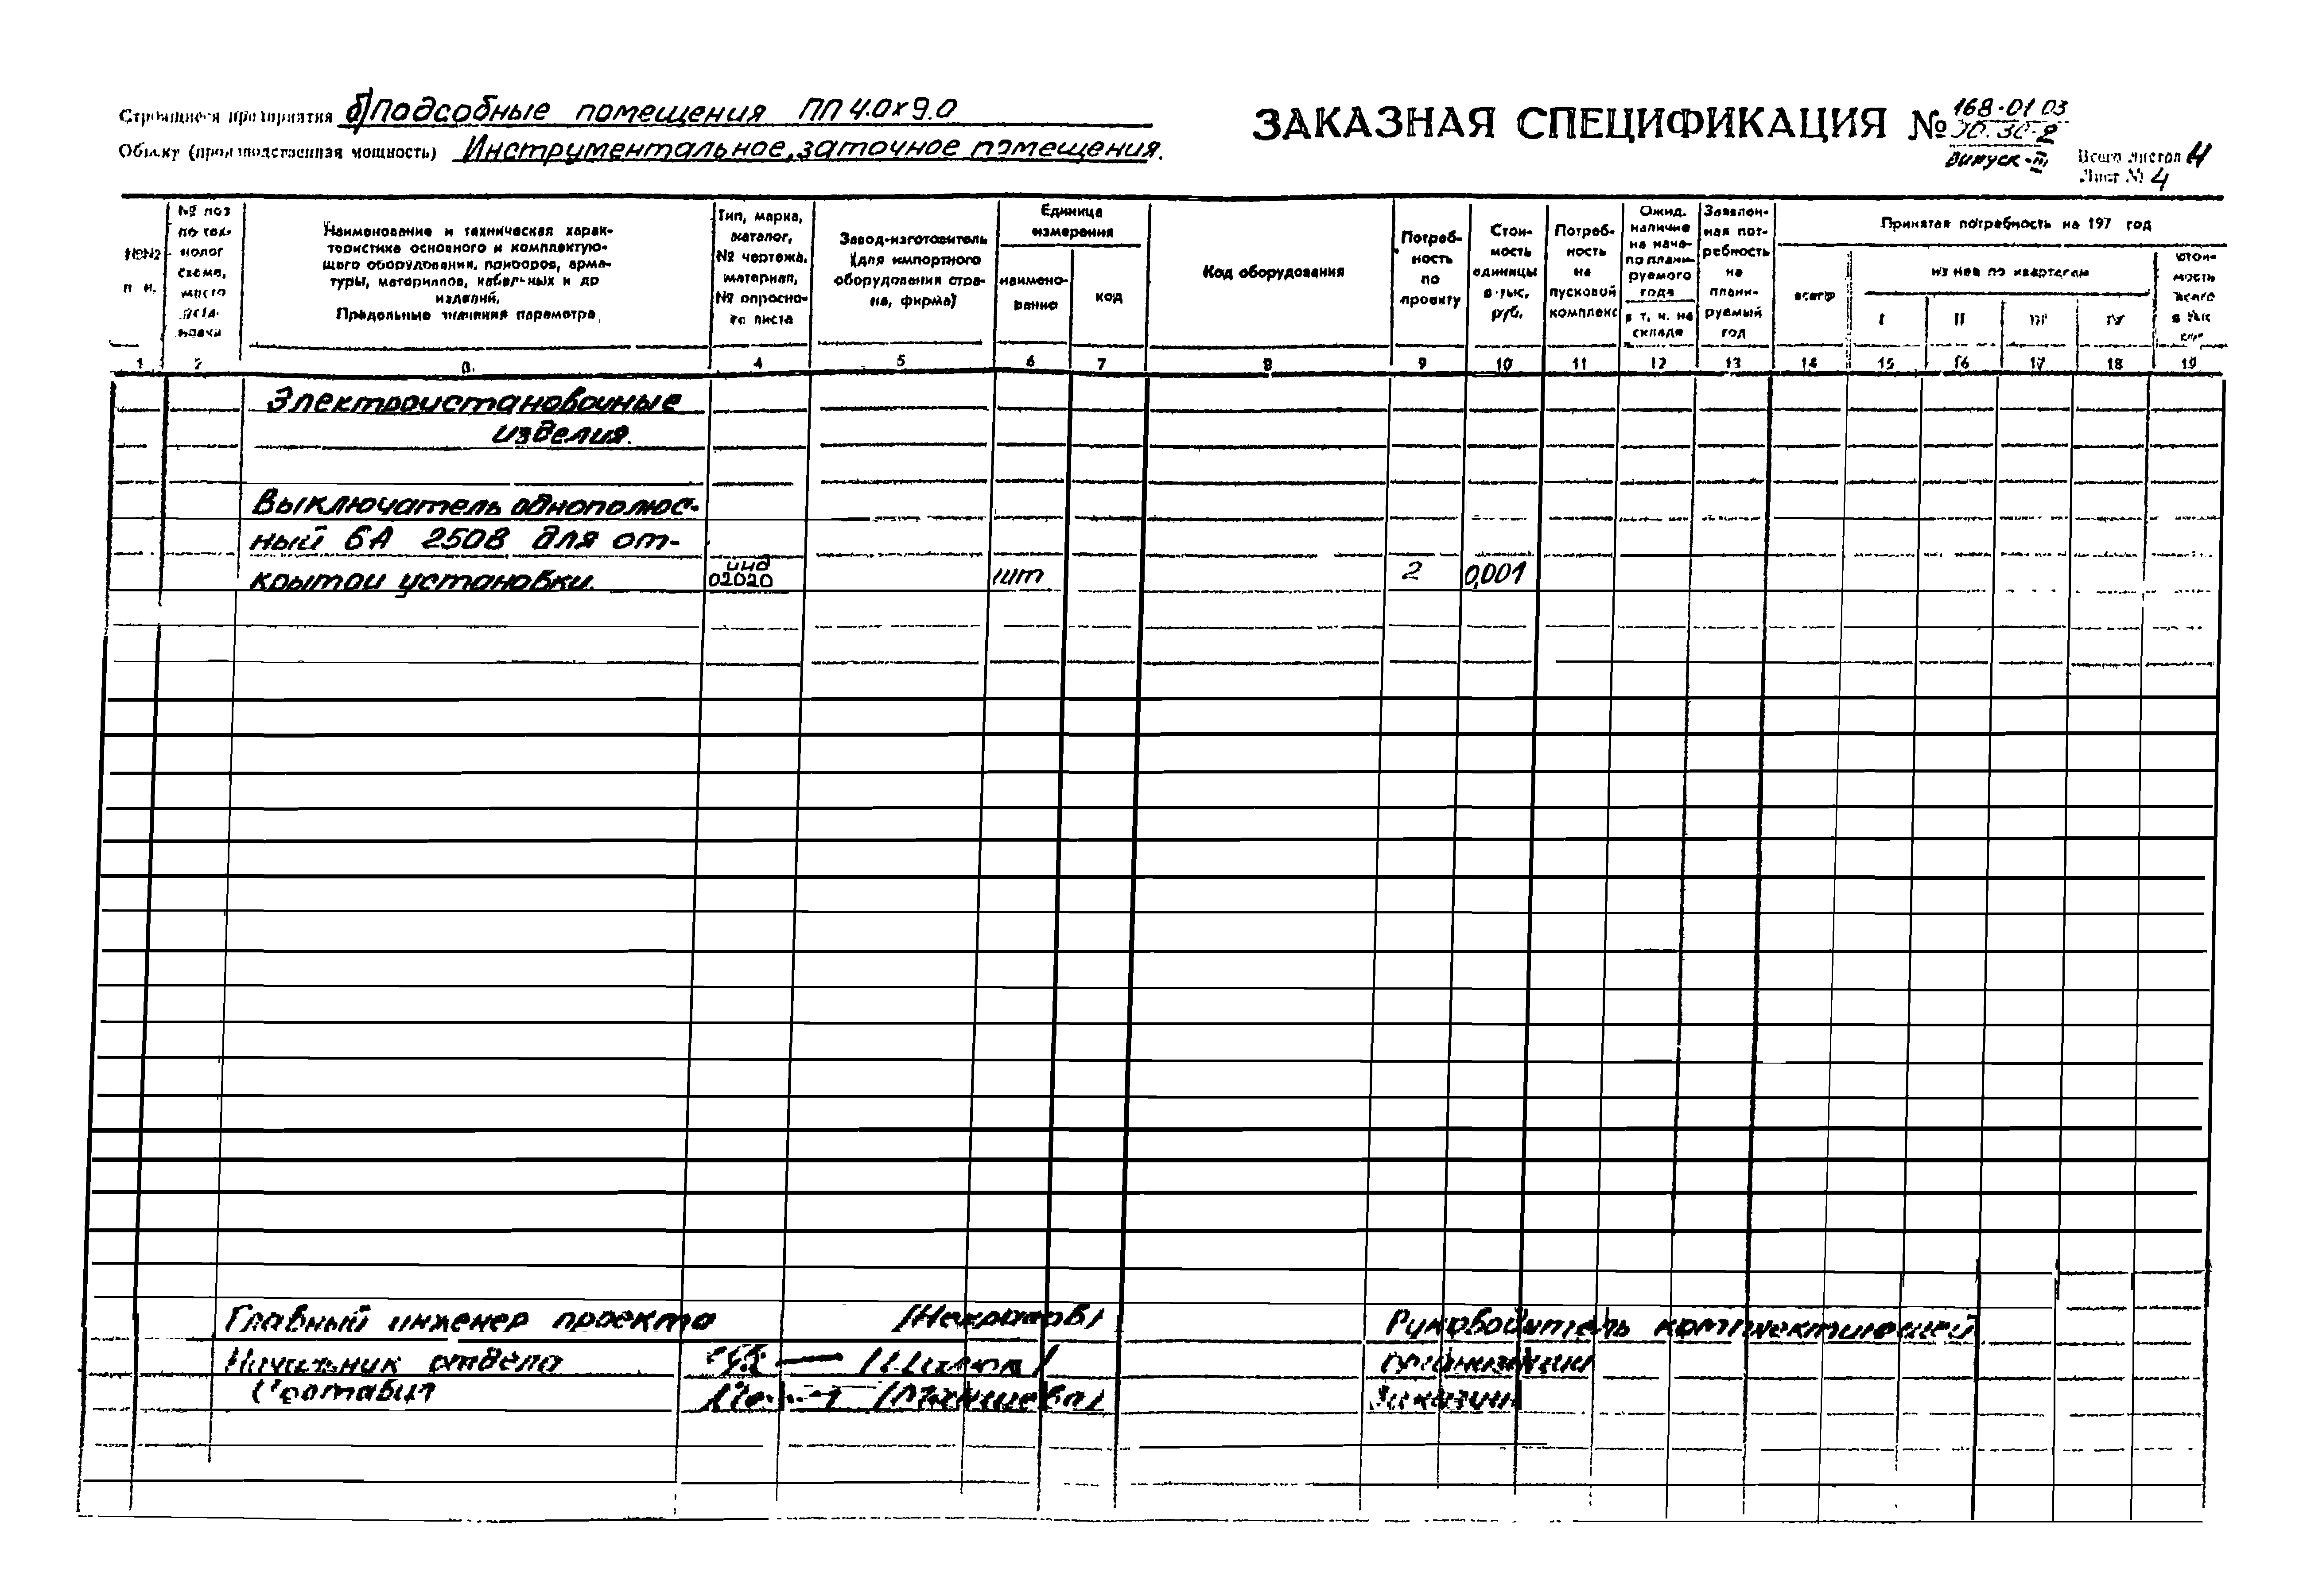 Строящиеся предприятия б) Подсобные помещения ПП 4.0х9.0
Объект (производственная мощность) Инструментальное, заточное помещения.
ЗАКАЗНАЯ СПЕЦИФИКАЦИЯ № 168-01 03
30.30-2
Выпуск-III
Всего листов 4
Лист № 4
№№ п. п.
№ поз по тех-нолог схеме, место уста-новки
Наименование и техническая харак-
теристика основного и комплектую-
щего оборудования, приборов, арма-
туры, материалов, кабельных и др
изделий.
Предельные значения параметра
Тип, марка, каталог, № чертежа, материал, № опросно-го листа
Завод-изготовитель (для импортного оборудования стра-на, фирма)
Единица измерения
наимено-вание
код
Код оборудования
Потреб-ность по проекту
Стои-мость единицы в тыс. руб.
Потреб-ность на пусковой комплекс
Ожид. наличие на нача-ло плани-руемого года
в т. ч. на складе
Заявлен-ная пот-ребность на плани-руемый год
Принятая потребность на 197 год
всего
из нее по кварталам
I II III IV
стои-мость всего в тыс руб
1 2 3 4 5 6 7 8 9 10 11 12 13 14 15 16 17 18 19
Электроустановочные
изделия.
Выключатель однополюс-
ный 6А 250В для от-
крытой установки. инд 02020 шт 2 0,001
Главный инженер проекта
Руководитель комплектующей
Начальник отдела
организации
Составил
Заказчик